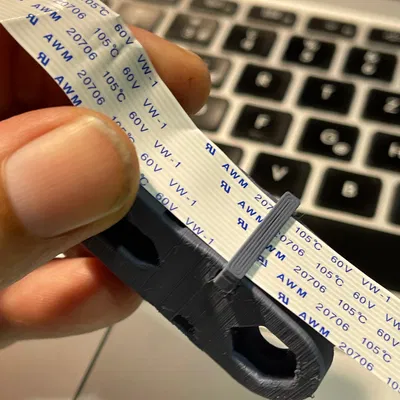 AWM 20706 105℃ 60V VW-1
AWM 20706 105℃ 60V VW-1
AWM 20706 105℃ 60V VW-1
60V VW-1
VW-1
AWM 105℃ 60V VW-1
AWM 105℃ 60V
AWM 20706 105℃
AWM 20706
R
T
Z
F
G
H
V
B